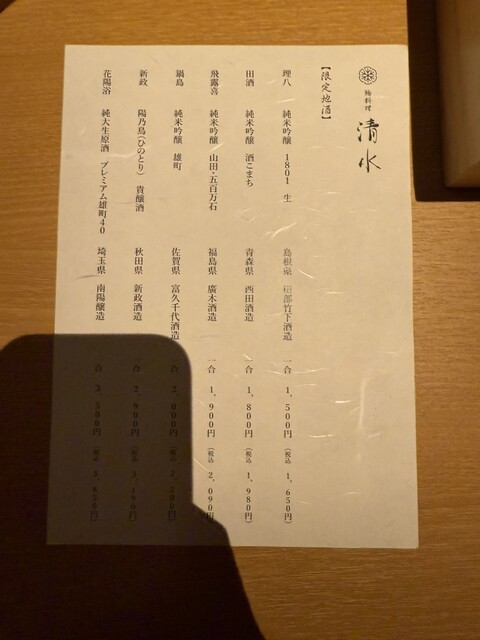 料理
清水
【限定地酒】
理八 純米吟醸 1801 生 島根県 田部竹下酒造 一合 1,500円 (税込 1,650円)
田酒 純米吟醸 酒こまち 青森県 西田酒造 一合 1,800円 (税込 1,980円)
飛露喜 純米吟醸 山田・五百万石 福島県 廣木酒造 一合 1,900円 (税込 2,090円)
鍋島 純米吟醸 雄町 佐賀県 富久千代酒造 一合 2,000円 (税込 2,200円)
新政 陽乃鳥(ひのとり) 貴醸酒 秋田県 新政酒造 一合 2,900円 (税込 3,190円)
花陽浴 純大生原酒 プレミアム雄町40 埼玉県 南陽醸造 一合 3,500円 (税込 3,850円)